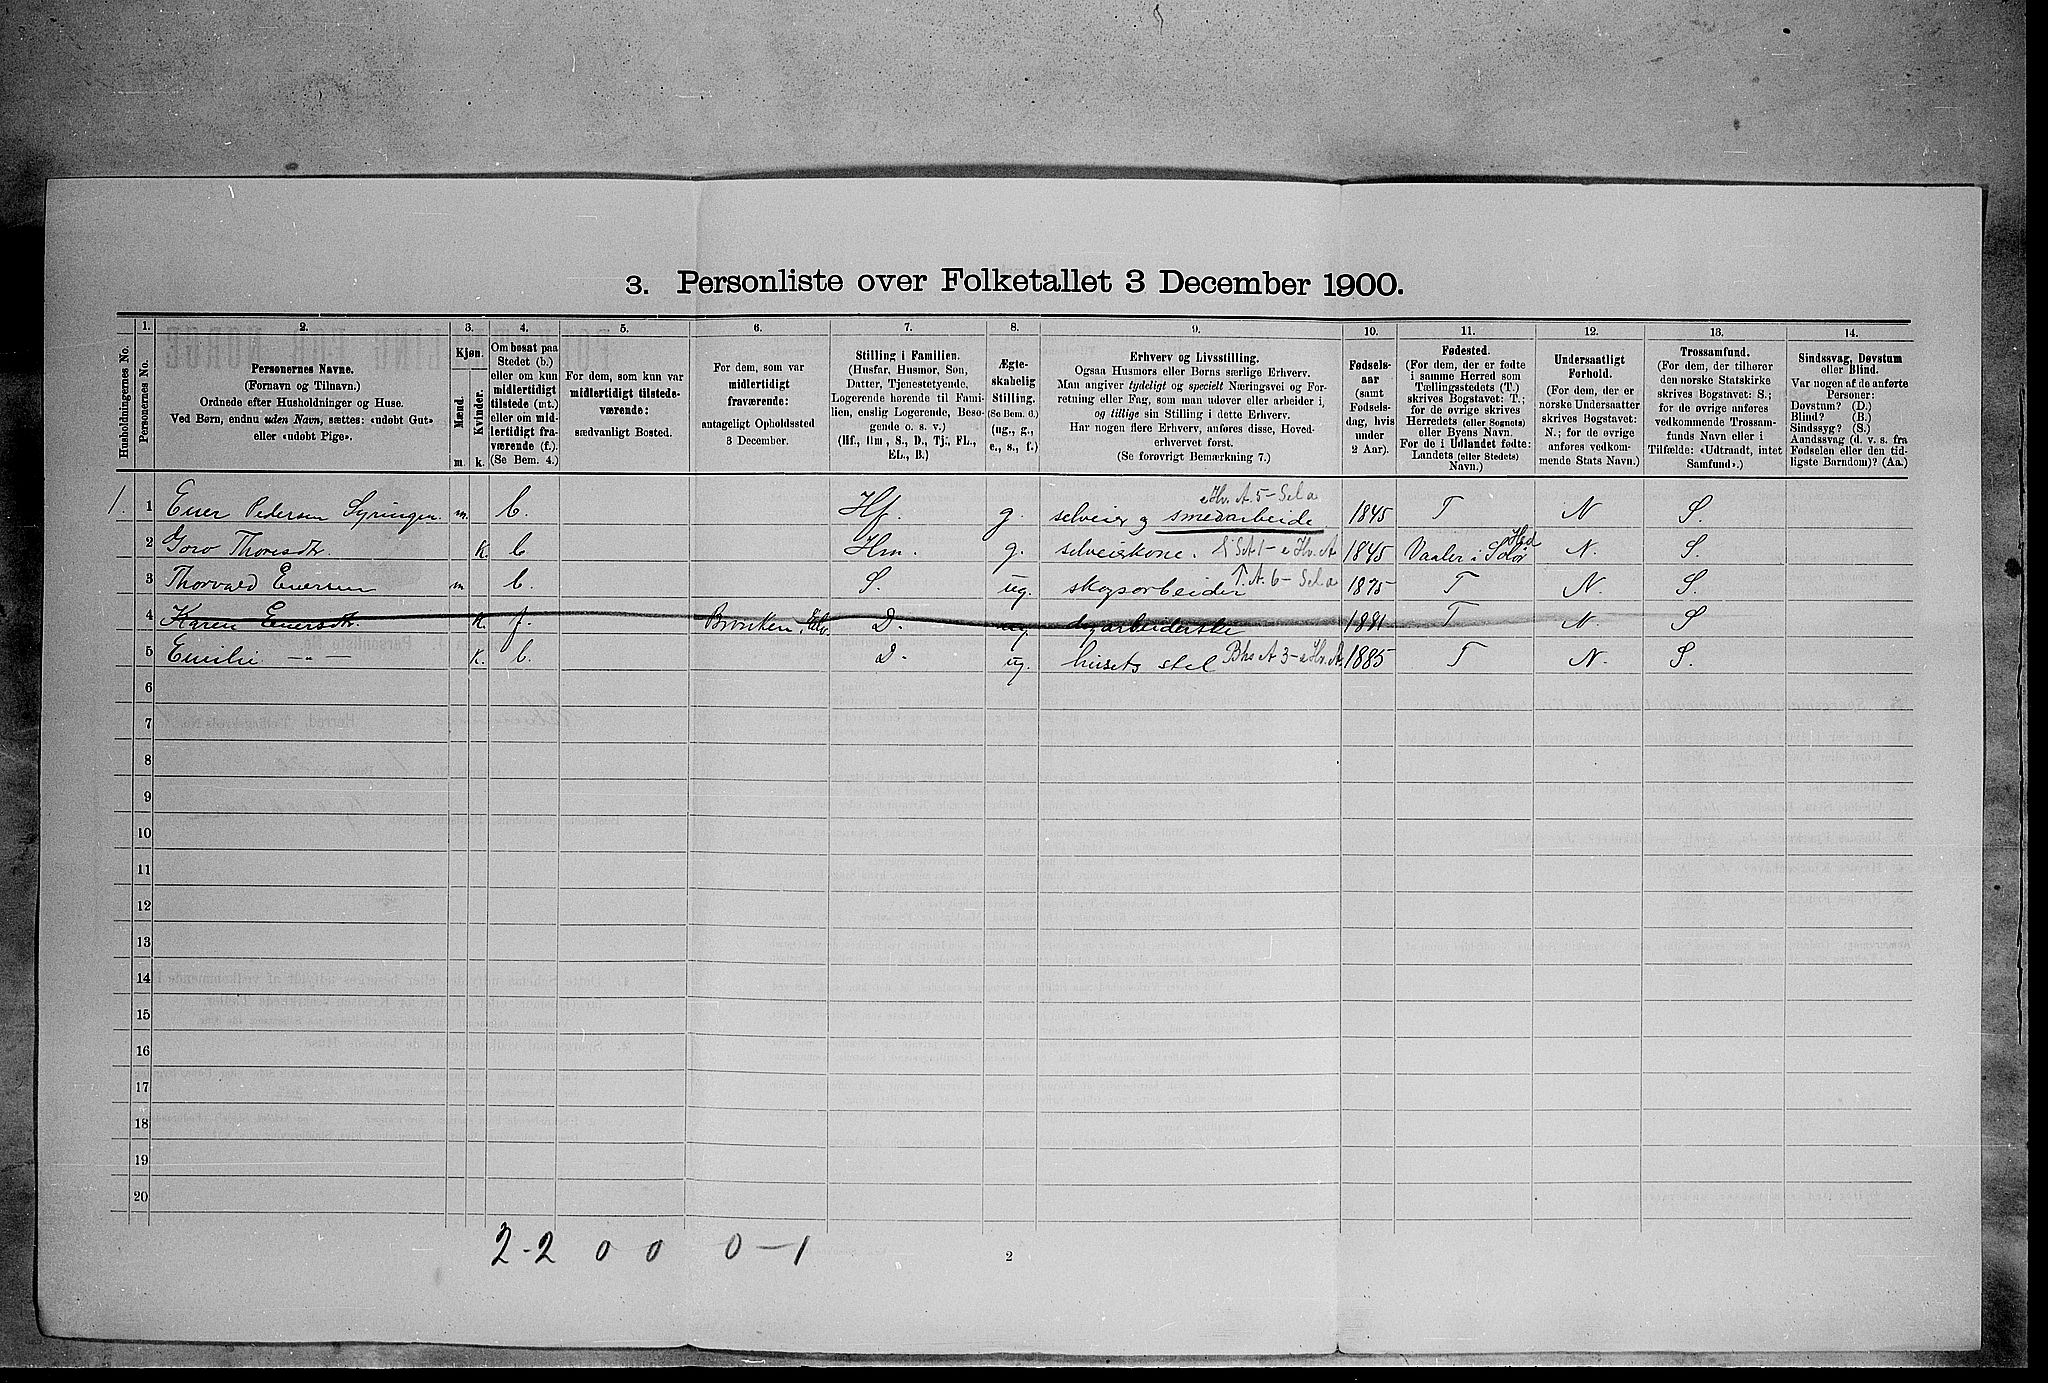 3. Personliste over Folketallet 3 December 1900.
1. 2. 3. 4. 5. 6. 7. 8. 9. 10. 11. 12. 13. 14.
Husholdningernes No.
Personernes No.
Personernes Navne.
(Fornavn og Tilnavn.)
Ordnede efter Husholdninger og Huse.
Ved Børn, endnu uden Navn, sættes: «udøbt Gut»
eller «udøbt Pige».
Kjøn.
Mænd.
Kvinder.
m. k.
Om bosat paa
Stedet (b.)
eller om kun
midlertidigt
tilstede (mt.)
eller om mid-
lertidigt fra-
værende (f.).
(Se Bem. 4.)
For dem, som kun var
midlertidigt tilstede-
værende:
sædvanligt Bosted.
For dem, som var
midlertidigt
fraværende:
antageligt Opholdssted
3 December.
Stilling i Familien.
(Husfar, Husmor, Søn,
Datter, Tjenestetyende,
Logerende hørende til Fami-
lien, enslig Logerende, Besø-
gende o. s. v.)
(Hf., Hm., S., D., Tj., FL.,
EL., B.)
Ægte-
skabelig
Stilling.
(Se Bem. 6.)
(ug., g.,
e., s., f.)
Erhverv og Livsstilling.
Ogsaa Husmors eller Børns særlige Erhverv.
Man angiver tydeligt og specielt Næringsvei og For-
retning eller Fag, som man udøver eller arbeider i,
og tillige sin Stilling i dette Erhverv.
Har nogen flere Erhverv, anføres disse, Hoved-
erhvervet først.
(Se forøvrigt Bemærkning 7.)
Fødsels-
aar
(samt
Fødsels-
dag, hvis
under
2 Aar).
Fødested.
(For dem, der er fødte
i samme Herred som
Tællingsstedets (T.)
skrives Bogstavet: T.;
for de øvrige skrives
Herredets (eller Sognets)
eller Byens Navn.
For de i Udlandet fødte:
Landets (eller Stedets)
Navn.)
Undersaatligt
Forhold.
(For dem, der er
norske Undersaatter
skrives Bogstavet:
N.; for de øvrige
anføres vedkom-
mende Stats Navn.)
Trossamfund.
(For dem, der tilhører
den norske Statskirke
skrives Bogstavet: S.;
for de øvrige anføres
vedkommende Trossam-
funds Navn eller i
Tilfælde: «Udtraadt, intet
Samfund».)
Sindssvag, Døvstum
eller Blind.
Var nogen af de anførte
Personer:
Døvstum? (D.)
Blind? (B.)
Sindssyg? (S.)
Aandssvag (d. v. s. fra
Fødselen eller den tid-
ligste Barndom)? (Aa.)
1. 1 Ener Pedersen Syringen. m. b. Hf. g. selveier og smedarbeide 1845 T N S.
2 Goro Thoresdtr. K b Hm g. selveierkone. 1845 Vaaler i Solør Hed N. S.
3 Thorvald Enersen m b. S. ug. skogsarbeider T. A. 6 - Sel a 1875 T N. S.
4 Karen Enersdtr. K. f. D. ug 1881 T N. S
5 Emilie -"- K. b. D. ug. husets stel 1885 T N. S.
6
7
8
9
10
11
12
13
14
15
16
17
18
19
20
2-2 0 0 0-1
2